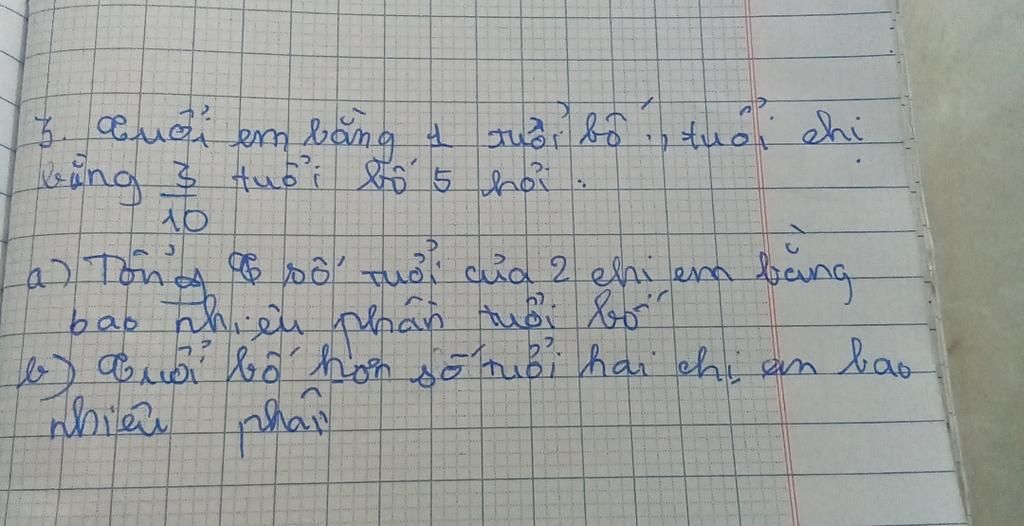 3. Tuổi em bằng 1 tuổi bố, tuổi chị
bằng 3/10 tuổi bố 5 hỏi:
a) Tổng số tuổi của 2 chị em bằng
bao nhiêu phần tuổi bố
b) Tuổi bố hơn số tuổi hai chị em bao
nhiêu phần